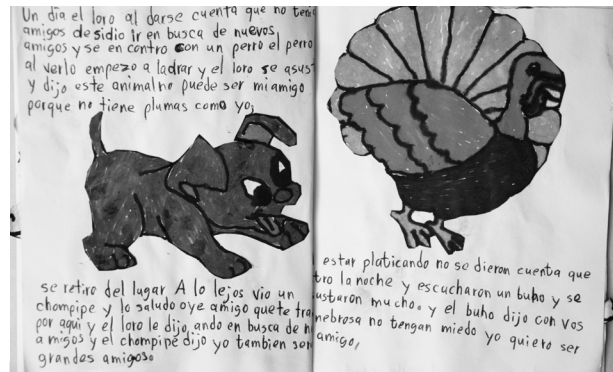 Un dia el loro al darse cuenta que no teni
amigos de sidio ir en busca de nuevos
amigos y se en contro con un perro el perro
al verlo empezo a ladrar y el loro se asus
y dijo este animal no puede ser mi amigo
porque no tiene plumas como yo,
se retiro del lugar A lo lejos vio un
chompipe y lo saludo oye amigo que te tra
por aqui y el loro le dijo, ando en busca de n
amigos y el chompipe dijo yo tambien ser
grandes amigos.
estar platicando no se dieron cuenta que
tro la noche y escucharon un buho y se
ustaron mucho. y el buho dijo con vos
nebrosa no tengan miedo yo quiero ser
amigo,